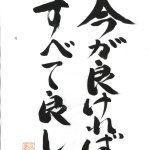 今が良ければ
すべて良し